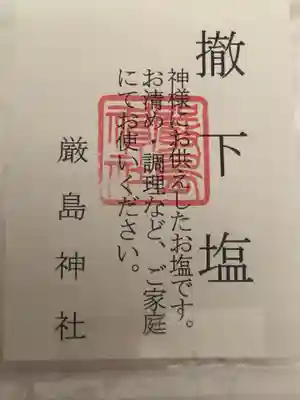 撤下塩
神様にお供えしたお塩です。
お清め、調理など、ご家庭
にてお使いください。
厳島神社